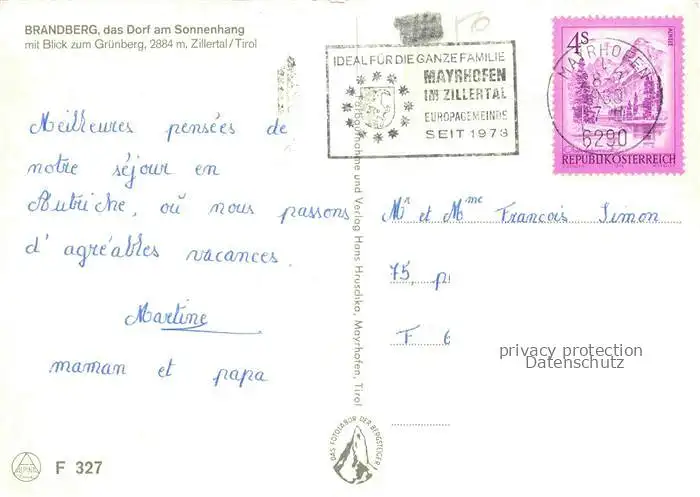 BRANDBERG, das Dorf am Sonnenhang
mit Blick zum Grünberg, 2884 m, Zillertal/Tirol
IDEAL FÜR DIE GANZE FAMILIE
MAYRHOFEN
IM ZILLERTAL
EUROPAGEMEINDE
SEIT 1973
4S
MAYRHOFEN
6290
REPUBLIK ÖSTERREICH
Meilleures pensées de
notre séjour en
Autriche, où nous passons
d'agréables vacances.
Martine
maman et papa
Mr et Mme François Simon
75, p
F 6
privacy protection
Datenschutz
Farbaufnahme und Verlag Hans Hruschka, Mayrhofen, Tirol
DAS FOTOLABOR DER BERGSTEIGER
F 327